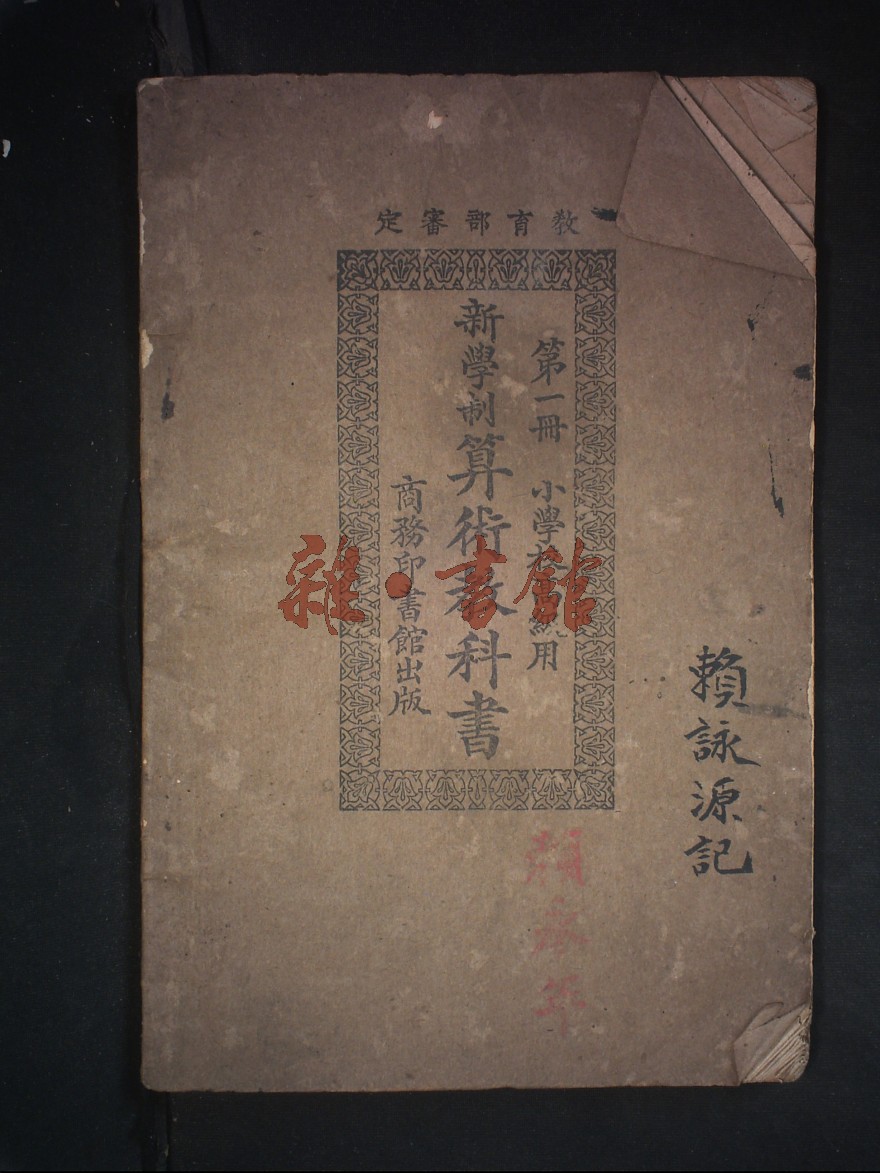 教育部審定
第一冊 小學校
用
新學制算術教科書
商務印書館出版
雜·書館
賴詠源記